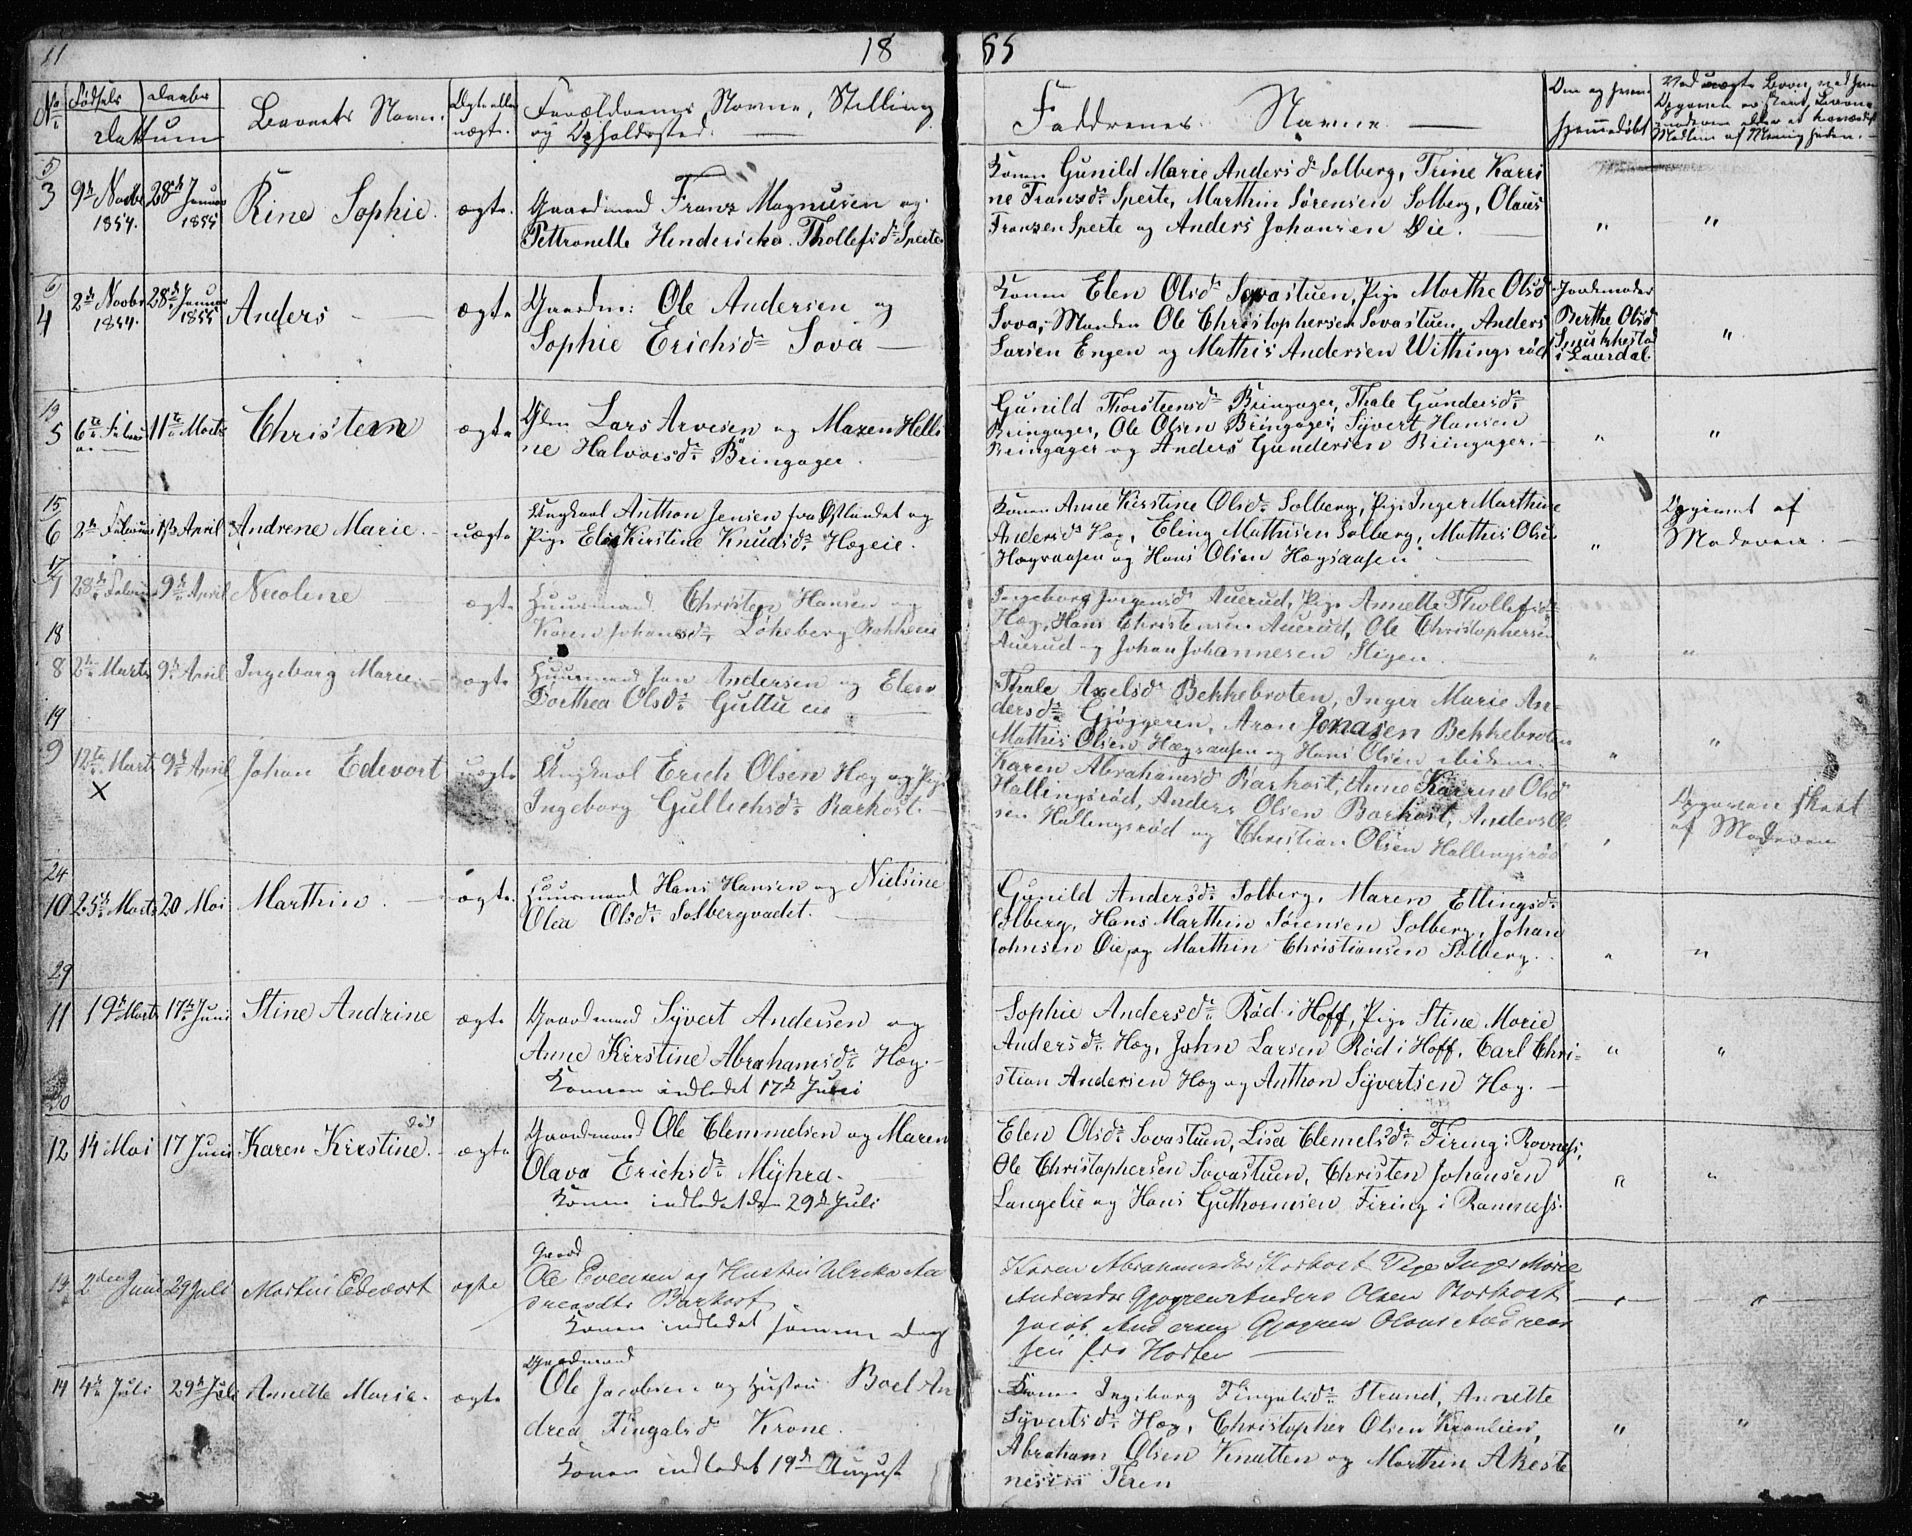 11 18 55
No Fødsels Daabs
Dattum
Barnets Navn.
Ægte eller uægte.
Forældrenes Navne, Stilling
og Opholdssted.
Faddrenes Navne
5
3 9de Novbr 1854. 28de Januar 1855 Rine Sophie. ægte.
Gaardmand Franz Magnusen og
Pettronelle Hendericka Thollefsdr Sperte
Konen Gunild Marie Andersdr Solberg, Trine Karri
ne Fransdr Sperte, Marthin Sørensen Solberg, Olaus
Franzen Sperte og Anders Johansen Øie.
" "
6
4 2de Novbr 1854. 28de Januar 1855 Anders ægte
Gaardm: Ole Andersen og
Sophie Erichsdr Sova
Konen Elen Olsdr Sovastuen, Pige Marthe Olsd
Sova, Manden Ole Christophersen Sovastuen, Anders
Larsen Engen og Mathis Andersen Withingsrød
Jordemoder
Berthe Olsd
i Laurdal
"
5 6te Februar 11te Marts Christen ægte
Lars Arvesen og Maren Helli
ne Halvorsdr Bringager.
Gunild Thorstensdr Bringager, Thale Gundersdr
Bringager, Ole Olsen Bringager, Syvert Hansen
Bringager og Anders Gundersen Bringager.
" "
15
6 2de Februar 1st April Andrene Marie. uægte
Ungkarl Anthon Jensen fra Østlandet og
Pige Elen Kirstine Knudsdr Hægeie.
Konen Anne Kirstine Olsdr Solberg, Pige Inger Marthine
Andersd Hæg, Eling Mathisen Solberg, Mathis Olsen
Hægsaasen og Hans Olsen Hægsaasen
"
Opgivet af
Moderen.
17
7 28de Februar 9de April Nicoline ægte
Huusmand Christen Hansen og
Karen Johansdr Løkeberg Bakkeie
Ingeborg Jørgensd Auerud, Pige Annette Thollefsdr
Hæg, Hans Christensen Auerud, Ole Christophersen
Auerud og Johan Johannesen Stigen.
" "
18
8 2de Marts 9de April Ingeborg Marie. ægte
Huusmand Jan Andersen og Elen
Dorthea Olsdr Guttu eie
Thale Axelsd Bekkebroten, Inger Marie An-
dersdr Gjøggeren, Aron Jonasen Bekkebroten
Mathis Olsen Hægsaasen og Hans Olsen ibidem.
" "
19
9 12te Marts 9de April Johan Edevart uægte
X
Ungkarl Erich Olsen Hæg og Pige
Ingeborg Gullichsdr Barkost.
Karen Abrahamsd Barkost, Anne Karrine Olsd
Hallingsrød, Anders Olsen Barkost, Anders Ol
sen Hallingsrød og Christian Olsen Hallingsrød
"
Opgaven skeet
af Moderen
24
10 25de Marts 20 Mai Marthin. ægte.
Huusmand Hans Hansen og Nielsine
Olea Olsdr Solbergvadet.
Gunild Andersdr Solberg, Maren Ellingsdr
Solberg, Hans Marthin Sørensen Solberg, Johan
Johnsen Øie og Marthin Christiansen Solberg.
" "
29
11 19de Marts 17de Juni Stine Andrine ægte
Gaardmand Syvert Andersen og
Anne Kirstine Abrahamsdr Hæg.
Konen indledet 17de Juni
Sophie Andersdr Rød i Hoff, Pige Stine Marie
Andersdr Hæg, John Larsen Rød i Hoff, Carl Chri-
stian Andersen Hæg og Anthon Syvertsen Hæg.
" "
30
12 14 Mai 17 Juni Karen Kirstine. død ægte
Gaardmand Ole Clemmetsen og Maren
Olava Erichsdr Myhra.
Konen indledet den 29de Juli
Elen Olsdr Sovastuen, Lisa Clemetsdr Firing i Ravness,
Ole Christophersen Sovastuen, Christen Johansen
Langelie og Hans Guthormsen Firing i Ramness.
" "
13 2den Juni 29 Juli Martin Edevart ægte
Gaard
Ole Evensen og Hustru Ulrika An
dreasdtr Barkost
Konen indledet samme Dag
Karen Abrahamsdtr Barkost Pige Inger Marie
Andersdtr Gjøgren Anders Olsen Barkost
Jacob Andersen Gjøgren Olaus Andreas
sen fra Horten
" "
14 4de Juli 29de Juli Annette Marie. ægte
Gaardmand
Ole Jacobsen og Hustru Boel An
drea Fingalsd Krone.
Konen indledet 19de August
Konen Ingeborg Fingalsdr Strand, Annette
Syvertsdr Hæg, Christopher Olsen Kronlien,
Abraham Olsen Knatten og Marthin Akeste
nesen Teren
" "